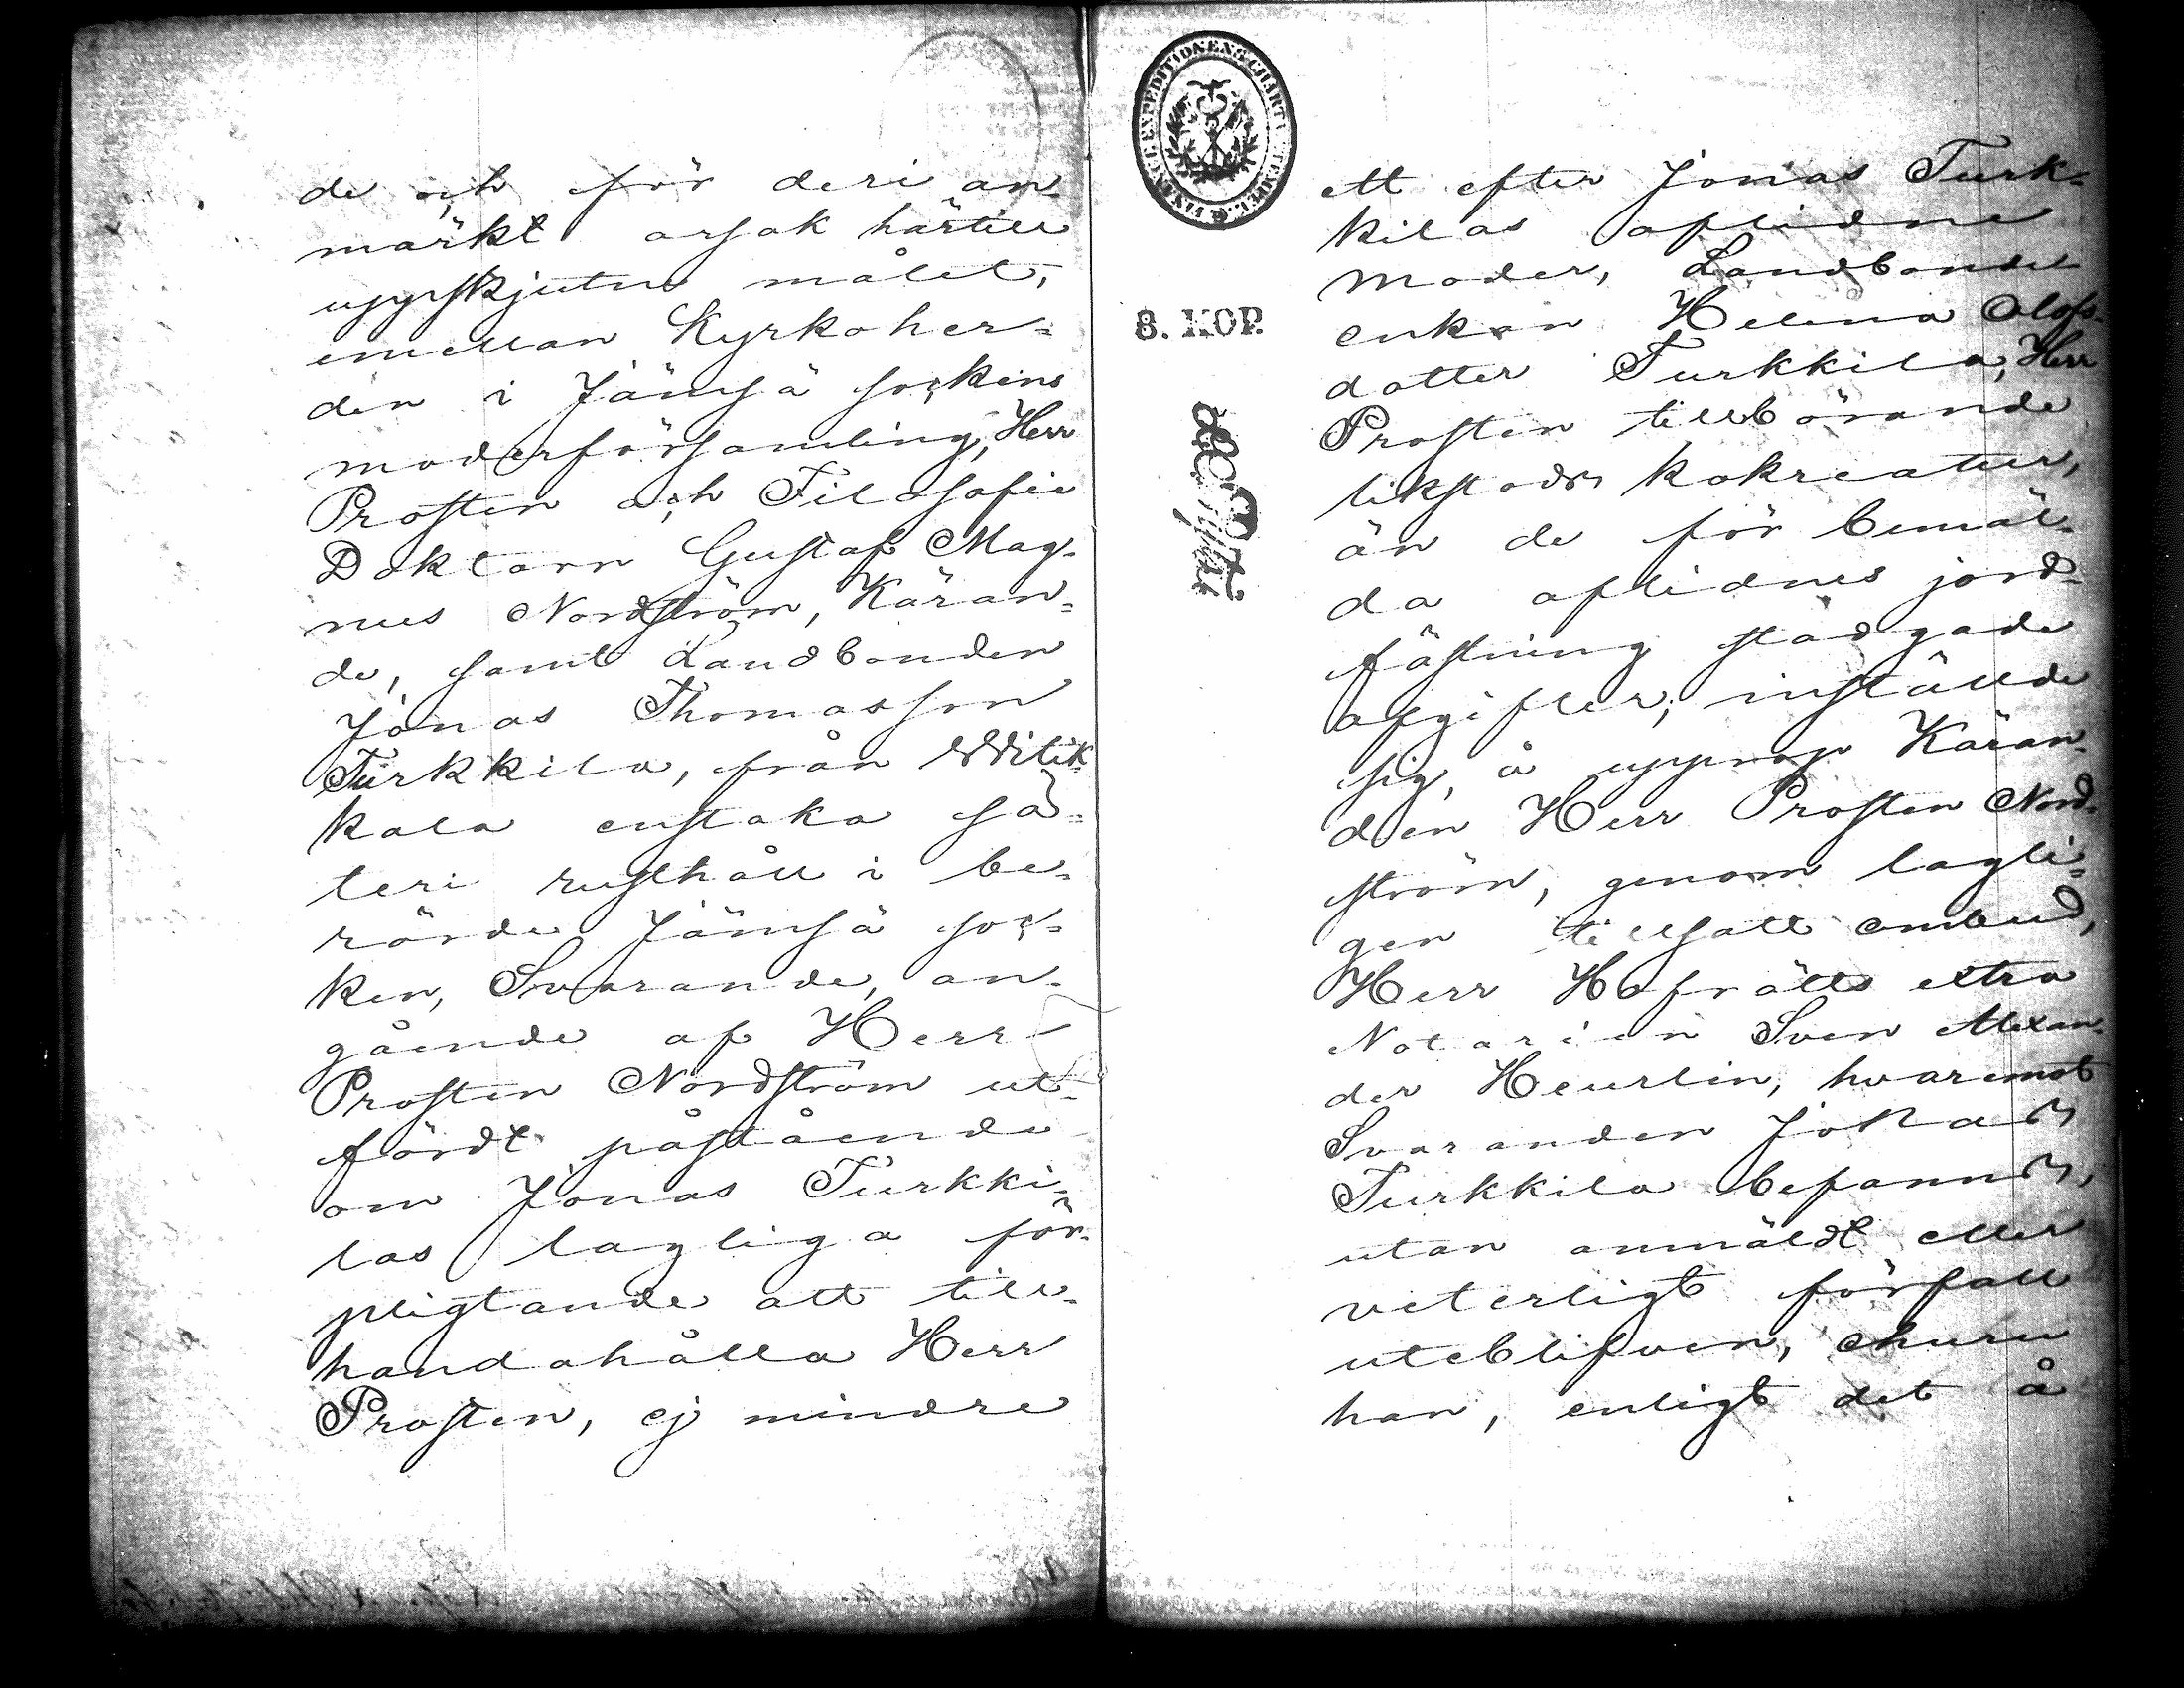 de och för deri an-
märkt orsak härtill
uppskjutna målet,
emellan Kyrkoher-
den i Jämsä sockens
moderförsamling, Herr
Prosten och Filosofie
Doktorn Gustaf Mag-
nus Nordström, Käran-
de, samt Landbonden
Jonas Thomasson
Turkkila, från Witik-
kala enstaka sä-
teri rusthåll i be-
rörde Jämsä soc-
ken, Svarande, an-
gående af Herr
Prosten Nordström ut-
fördt påstående
om Jonas Turkki-
las lagliga för-
pligtande att till-
handahålla Herr
Prosten, ej mindre
FINANCE EXPEDITIONENS CHARTÆ
8. KOP.
ett efter Jonas Turk-
kilas aflidne
moder, Landbonde
enkan Helena Olofs-
dotter Turkkila, Herr
Prosten tillhörande
likstods kokreatur,
än de för bemäl-
da aflidnes jord-
fästning stadgade
afgifter; inställde
sig, å upprop Käran-
den Herr Prosten Nord-
ström, genom lagli-
gen tillsatt ombud,
Herr Hofrätts extra
Notarien Sven Alexan-
der Heurlin, hvaremot
Svaranden Jonas
Turkkila befanns,
utan anmäldt eller
veterligt förfall
utebliven, ehuru
han, enligt det å